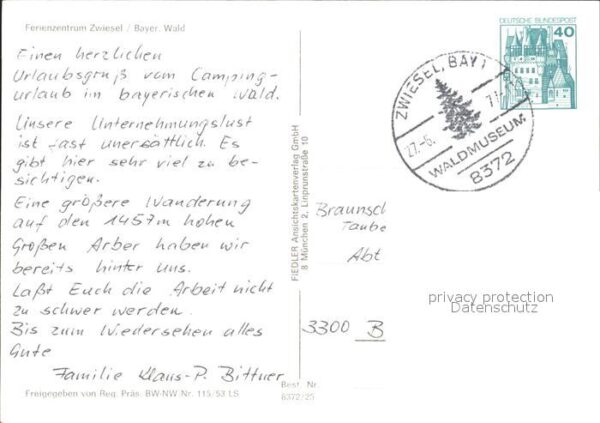 Ferienzentrum Zwiesel / Bayer. Wald
Einen herzlichen
Urlaubsgruß vom Camping-
urlaub im bayerischen Wald.
Unsere Unternehmungslust
ist fast unersättlich. Es
gibt hier sehr viel zu be-
sichtigen.
Eine größere Wanderung
auf den 1457m hohen
Großen Arber haben wir
bereits hinter uns.
Laßt Euch die Arbeit nicht
zu schwer werden.
Bis zum Wiedersehen alles
Gute
Familie Klaus-P. Bittner
Freigegeben von Reg. Präs. BW-NW Nr. 115/53 LS
FIEDLER Ansichtskartenverlag GmbH
8 München 2, Linprunstraße 10
Best. Nr.
8372/25
DEUTSCHE BUNDESPOST
40
ZWIESEL, BAY
27.-6.
WALDMUSEUM
8372
Braunsch
Taube
Abt
3300 B
privacy protection
Datenschutz